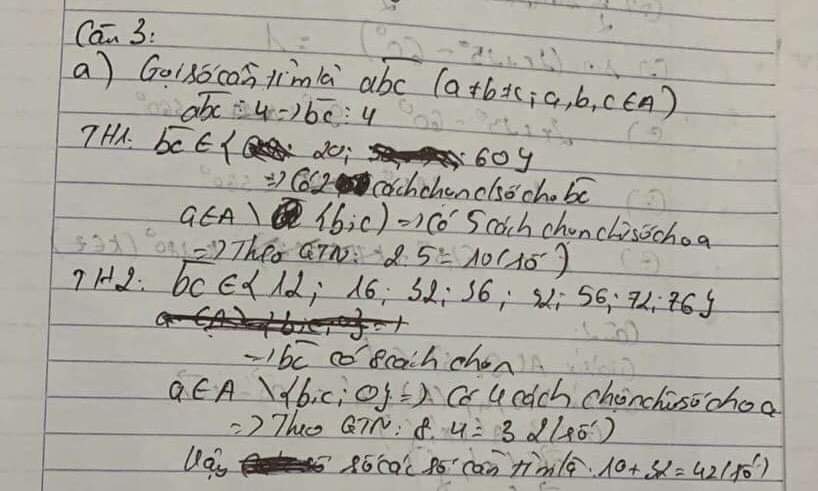 Câu 3:
a) Gọi số cần tìm là abc (a≠b≠c; a,b,c ∈ A)
abc ⋮ 4 => bc ⋮ 4
TH1: bc ∈ { 20; 60 }
=> Có 2 cách chọn c/số cho bc
a ∈ A \ {b;c} => có 5 cách chọn chữ số cho a
=> Theo QTN: 2.5 = 10 (số)
TH2: bc ∈ { 12; 16; 32; 36; 52; 56; 72; 76 }
=> bc có 8 cách chọn
a ∈ A \ {b;c;0} => Có 4 cách chọn chữ số cho a
=> Theo QTN: 8.4 = 32 (số)
Vậy số các số cần tìm là: 10 + 32 = 42 (số)